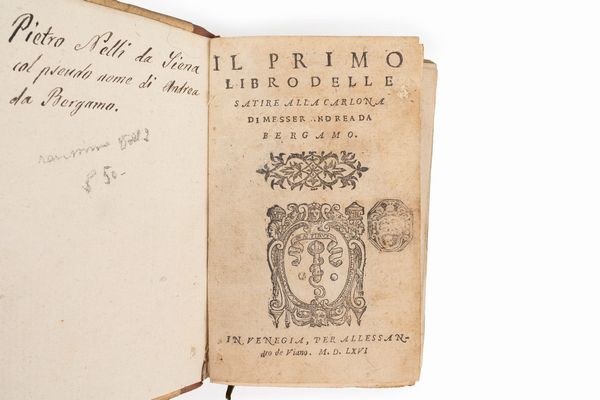 Pietro Nelli da Siena
col pseudo nome di Andrea
da Bergamo.
50-
IL PRIMO
LIBRO DELLE
SATIRE ALLA CARLONA
DI MESSER ANDREA DA
BERGAMO.
IN VENEGIA, PER ALLESSAN-
dro de Viano. M. D. LXVI